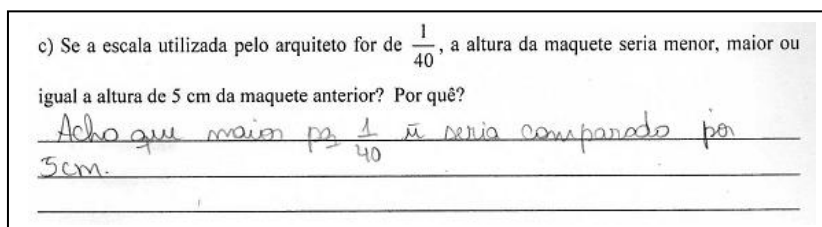 c) Se a escala utilizada pelo arquiteto for de 1/40, a altura da maquete seria menor, maior ou
igual a altura de 5 cm da maquete anterior? Por quê?
Acho que maior pq 1/40 ñ seria comparado por
5cm.